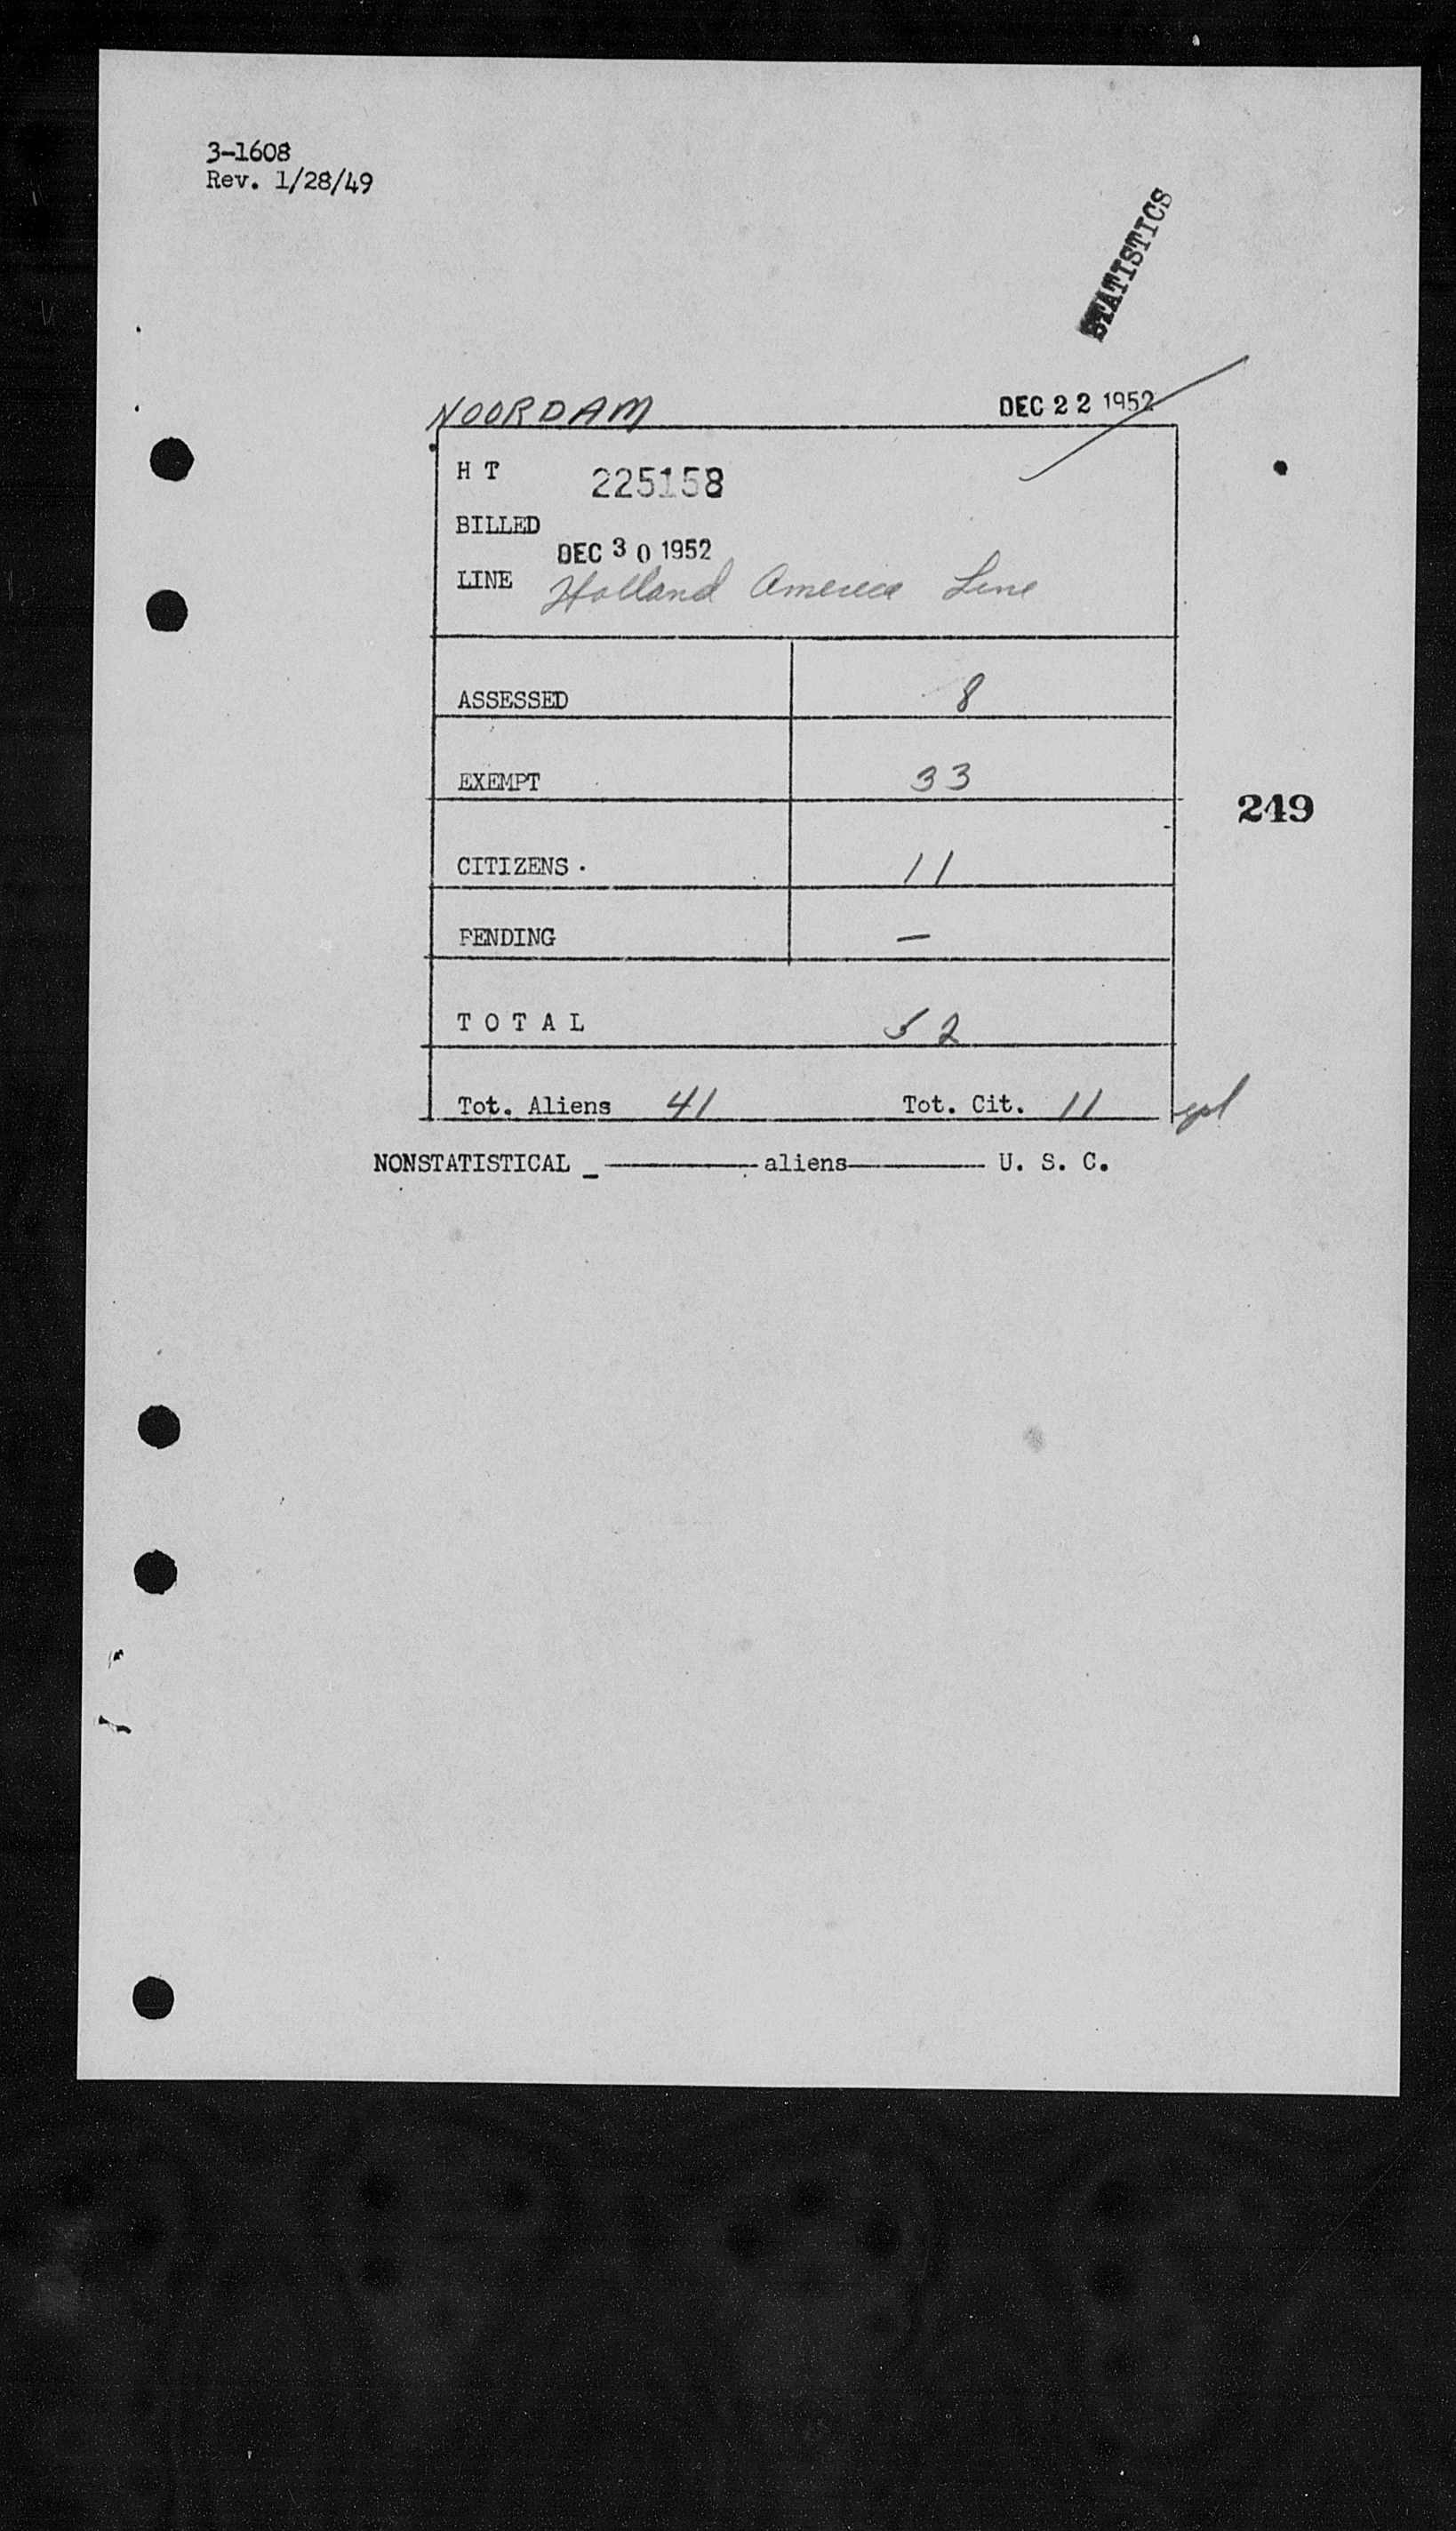 3-1608
Rev. 1/28/49
STATISTICS
NOORDAM DEC 22 1952
H T 225158
BILLED
DEC 30 1952
LINE Holland America Line
ASSESSED 8
EXEMPT 33
249
CITIZENS 11
PENDING —
T O T A L 52
Tot. Aliens 41 Tot. Cit. 11
NONSTATISTICAL _ ———— aliens ———— U. S. C.